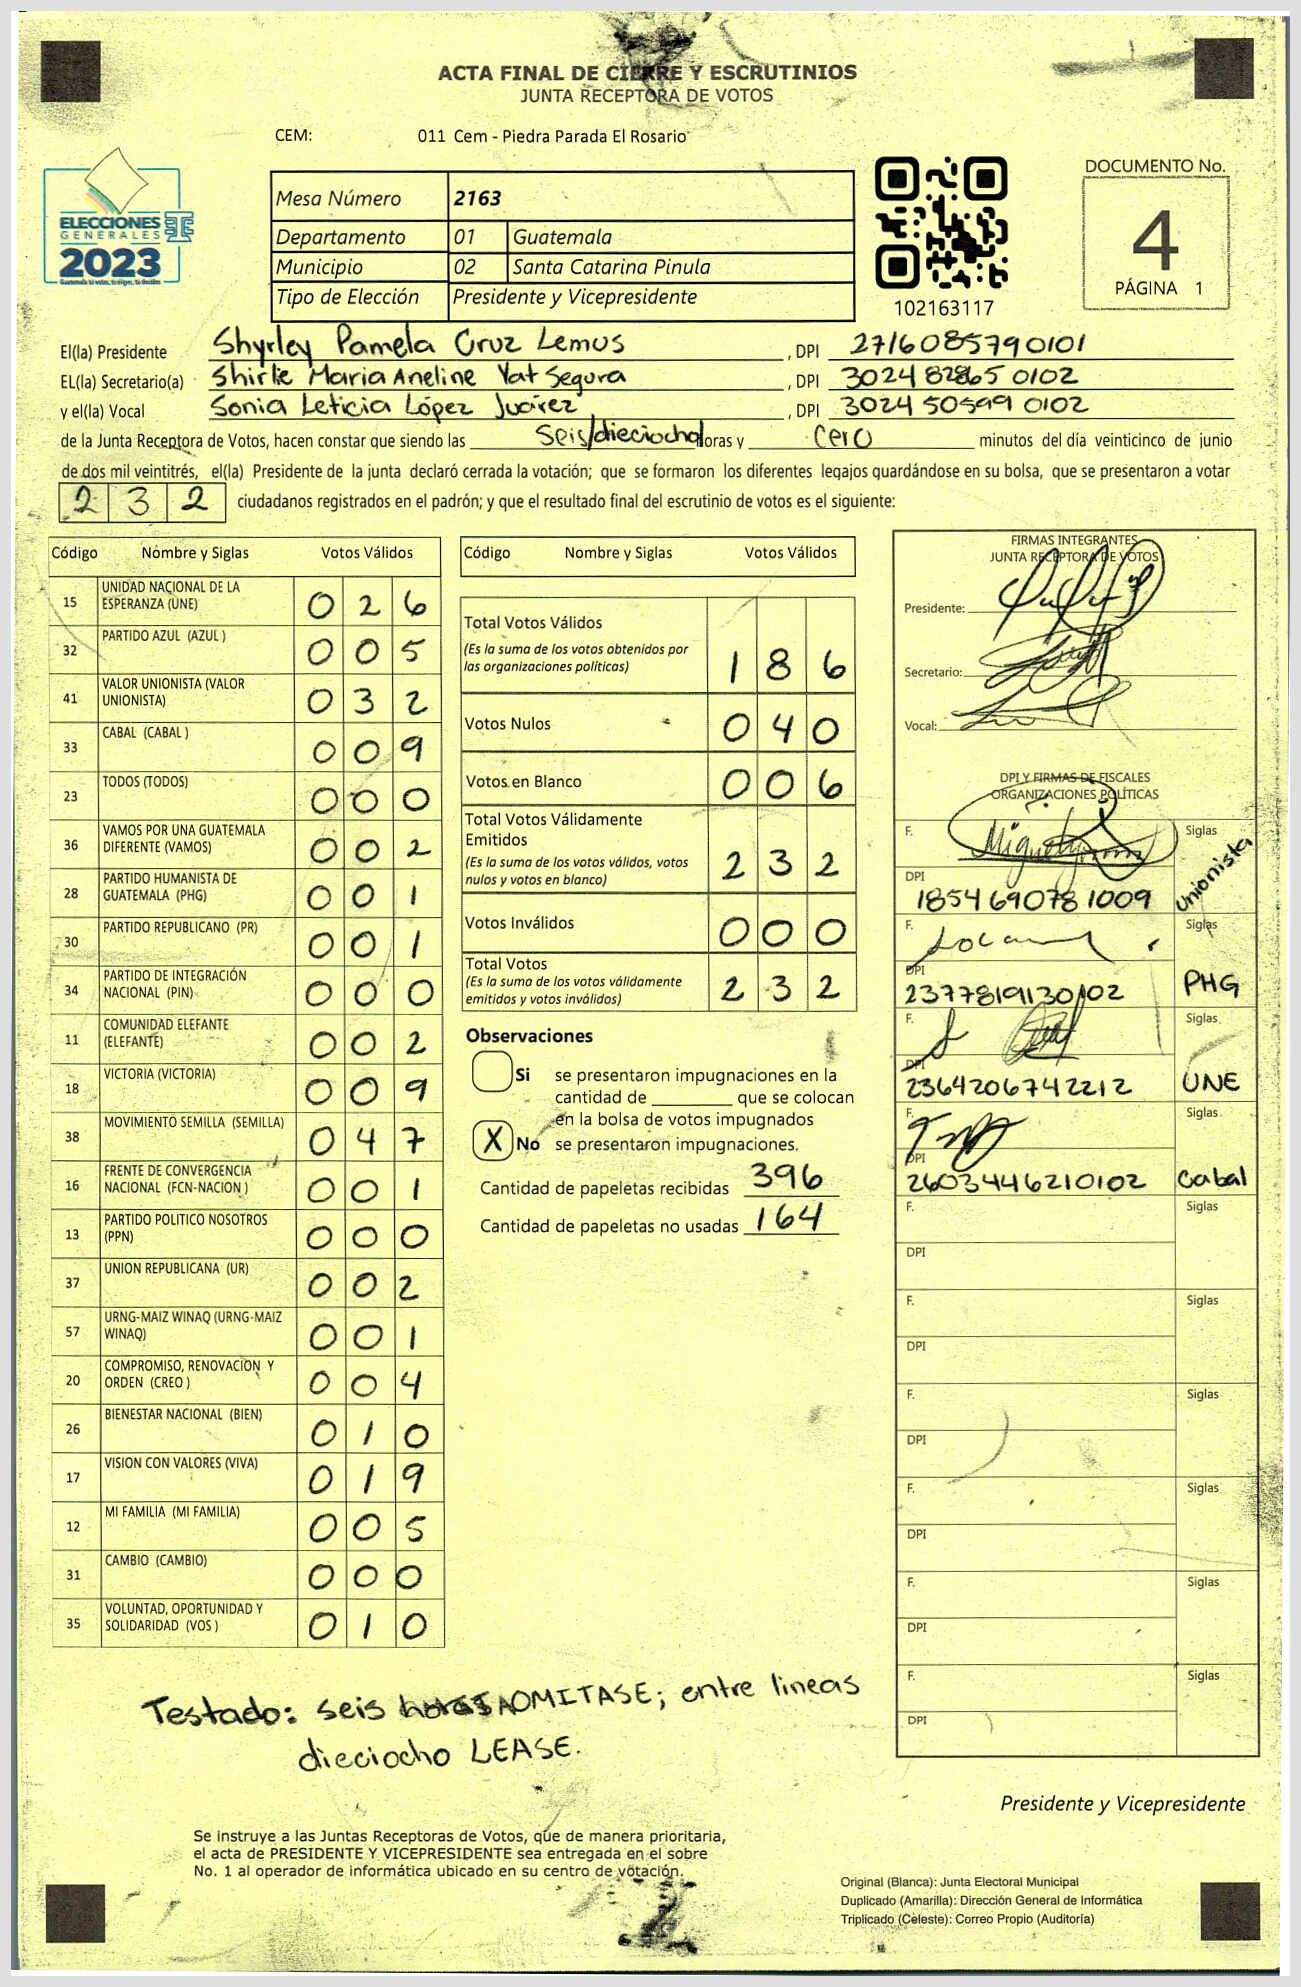 ACTA FINAL DE CIERRE Y ESCRUTINIOS
JUNTA RECEPTORA DE VOTOS
CEM: 011 Cem - Piedra Parada El Rosario
ELECCIONES
GENERALES
2023
Mesa Número 2163
Departamento 01 Guatemala
Municipio 02 Santa Catarina Pinula
Tipo de Elección Presidente y Vicepresidente
102163117
DOCUMENTO No.
4
PÁGINA 1
El(la) Presidente Shyrley Pamela Cruz Lemus , DPI 2716085790101
EL(la) Secretario(a) Shirle Maria Aneline Yat Segura , DPI
y el(la) Vocal Sonia Leticia López Juárez , DPI 3024 50599 0102
de la Junta Receptora de Votos, hacen constar que siendo las seis/dieciocho horas y cero minutos del día veinticinco de junio
de dos mil veintitrés, el(la) Presidente de la junta declaró cerrada la votación; que se formaron los diferentes legajos quardándose en su bolsa, que se presentaron a votar
232 ciudadanos registrados en el padrón; y que el resultado final del escrutinio de votos es el siguiente:
Código Nombre y Siglas Votos Válidos
15 UNIDAD NACIONAL DE LA ESPERANZA (UNE) 026
32 PARTIDO AZUL (AZUL ) 005
41 VALOR UNIONISTA (VALOR UNIONISTA) 032
33 CABAL (CABAL ) 009
23 TODOS (TODOS) 000
36 VAMOS POR UNA GUATEMALA DIFERENTE (VAMOS) 002
28 PARTIDO HUMANISTA DE GUATEMALA (PHG) 001
30 PARTIDO REPUBLICANO (PR) 001
34 PARTIDO DE INTEGRACIÓN NACIONAL (PIN) 000
11 COMUNIDAD ELEFANTE (ELEFANTE) 002
18 VICTORIA (VICTORIA) 009
38 MOVIMIENTO SEMILLA (SEMILLA) 047
16 FRENTE DE CONVERGENCIA NACIONAL (FCN-NACION ) 001
13 PARTIDO POLITICO NOSOTROS (PPN) 000
37 UNION REPUBLICANA (UR) 002
57 URNG-MAIZ WINAQ (URNG-MAIZ WINAQ) 001
20 COMPROMISO, RENOVACION Y ORDEN (CREO ) 004
26 BIENESTAR NACIONAL (BIEN) 010
17 VISION CON VALORES (VIVA) 019
12 MI FAMILIA (MI FAMILIA) 005
31 CAMBIO (CAMBIO) 000
35 VOLUNTAD, OPORTUNIDAD Y SOLIDARIDAD (VOS ) 010
Código Nombre y Siglas Votos Válidos
Total Votos Válidos
(Es la suma de los votos obtenidos por
las organizaciones políticas) 186
Votos Nulos 040
Votos en Blanco 006
Total Votos Válidamente
Emitidos
(Es la suma de los votos válidos, votos
nulos y votos en blanco) 232
Votos Inválidos 000
Total Votos
(Es la suma de los votos válidamente
emitidos y votos inválidos) 232
Observaciones
Si se presentaron impugnaciones en la
cantidad de ________ que se colocan
en la bolsa de votos impugnados
X No se presentaron impugnaciones.
Cantidad de papeletas recibidas 396
Cantidad de papeletas no usadas 164
FIRMAS INTEGRANTES
JUNTA RECEPTORA DE VOTOS
Presidente:
Secretario:
Vocal:
DPI Y FIRMAS DE FISCALES
ORGANIZACIONES POLÍTICAS
F. Siglas
DPI 1854 69078 1009 Unionista
F. Siglas
DPI 2377819130102 PHG
F. Siglas
DPI 2364206742212 UNE
F. Siglas
DPI 2603446210102 Cabal
F. Siglas
DPI
F. Siglas
DPI
F. Siglas
DPI
F. Siglas
DPI
F. Siglas
DPI
F. Siglas
DPI
Testado: seis horas OMITASE; entre lineas
dieciocho LEASE.
Presidente y Vicepresidente
Se instruye a las Juntas Receptoras de Votos, que de manera prioritaria,
el acta de PRESIDENTE Y VICEPRESIDENTE sea entregada en el sobre
No. 1 al operador de informática ubicado en su centro de votación.
Original (Blanca): Junta Electoral Municipal
Duplicado (Amarilla): Dirección General de Informática
Triplicado (Celeste): Correo Propio (Auditoría)